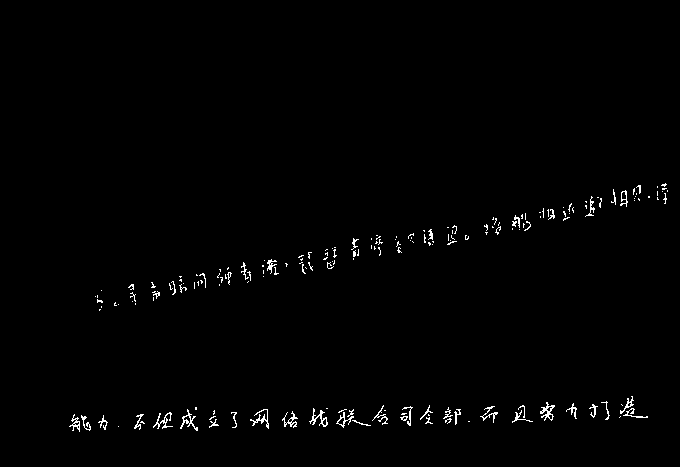 发。寻声暗问弹者谁，琵琶声停欲语迟。移船相近邀相见，添
能力，不但成立了网络战联合司令部，而且努力打造